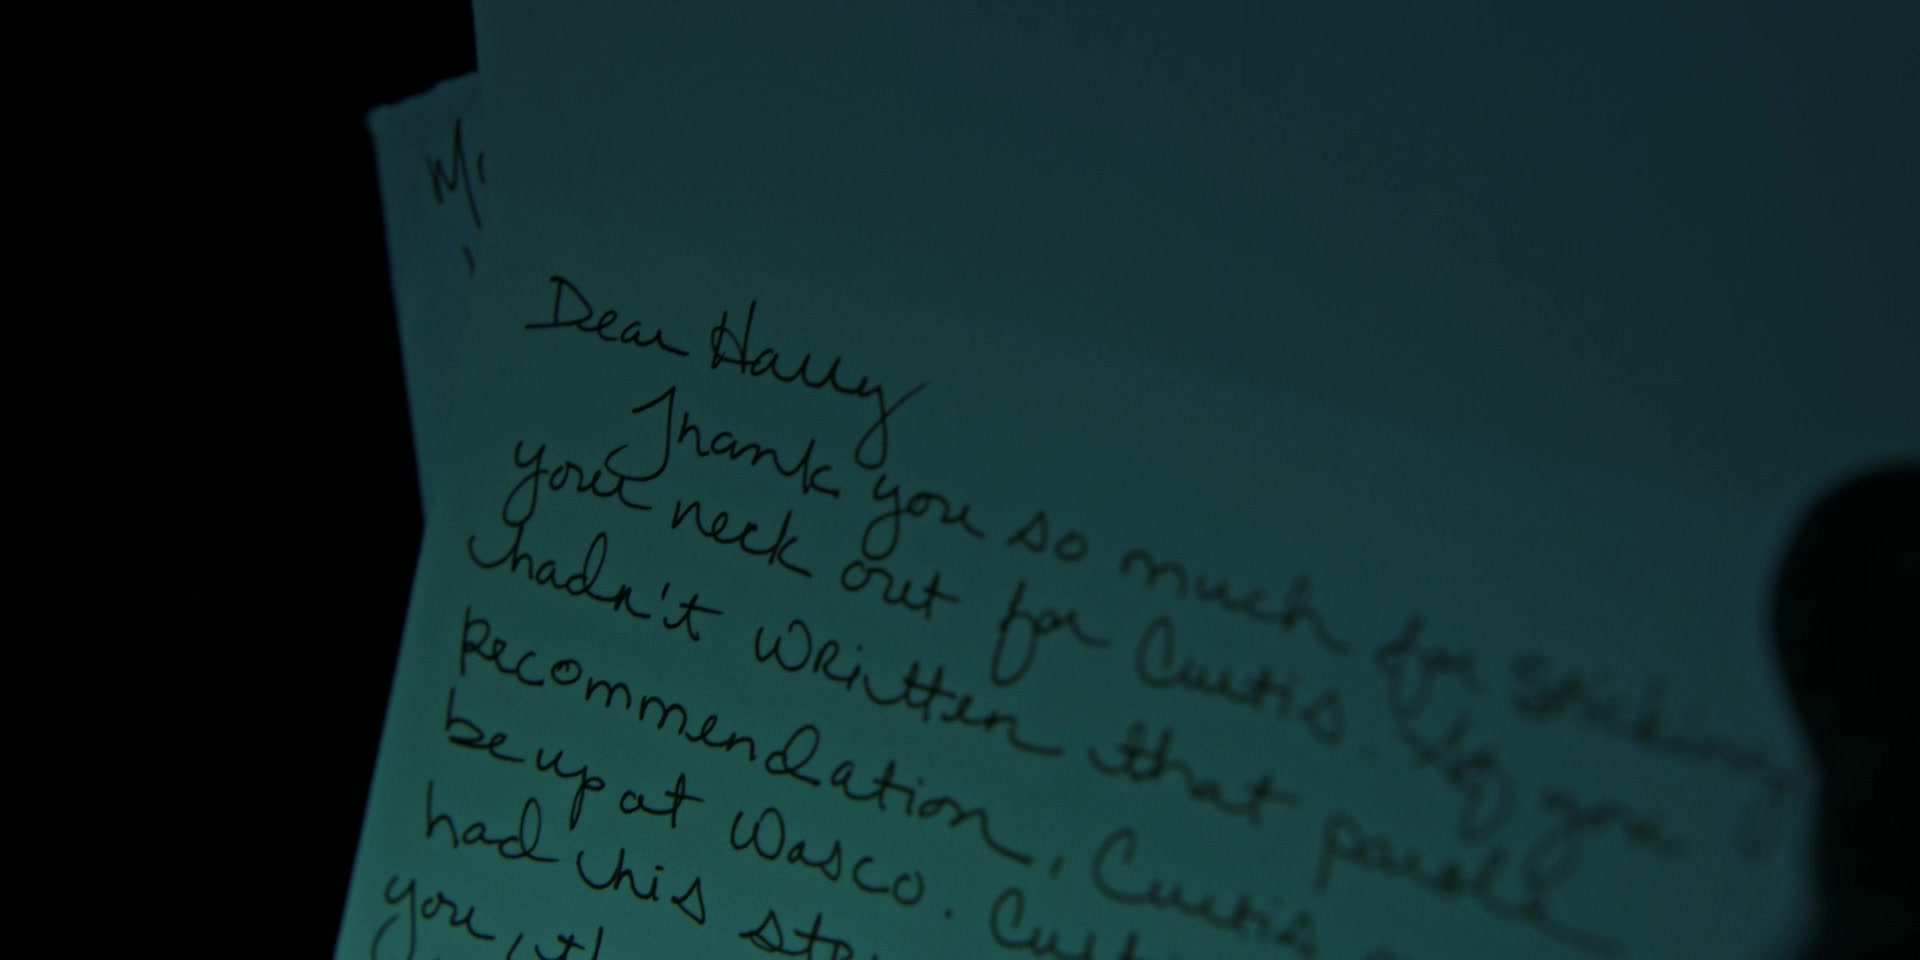 M
Dear Harry
Thank you so much for sticking
your neck out for Curtis. If you
hadn't written that parole
recommendation, Curtis
be up at Wasco. Curt
had his st
you, th